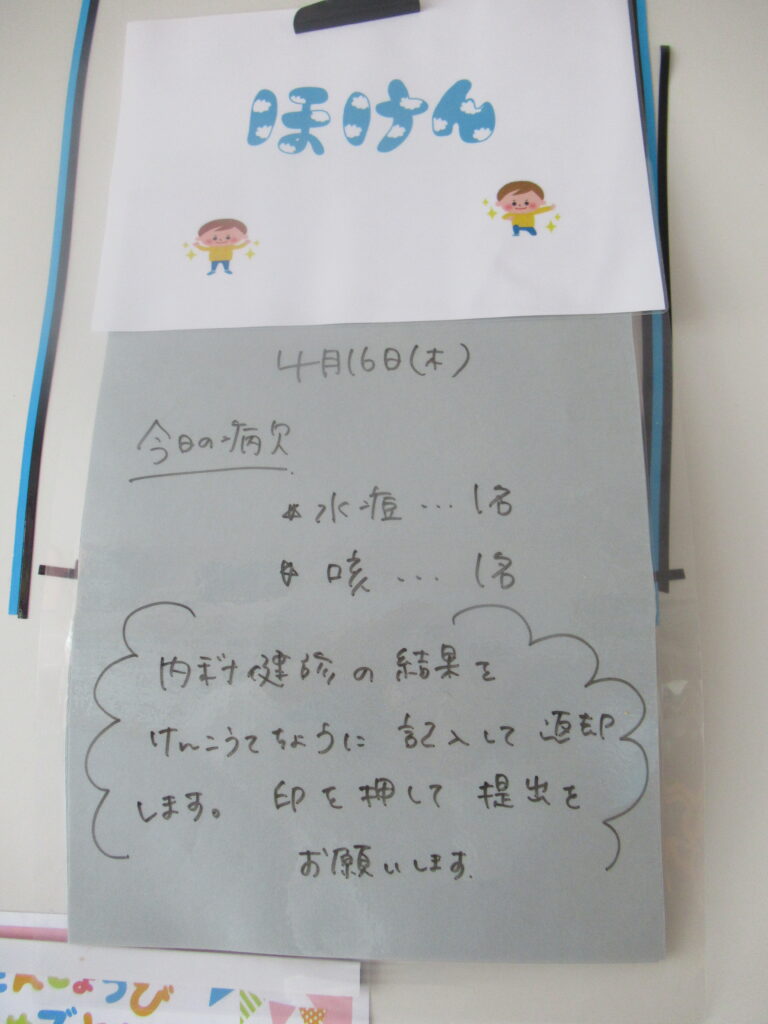 ほけん
4月16日(木)
今日の病欠
水痘…1名
咳…1名
内科健診の結果を
けんこうてちょうに記入して返却
します。印を押して提出を
お願いします。
んじょうび